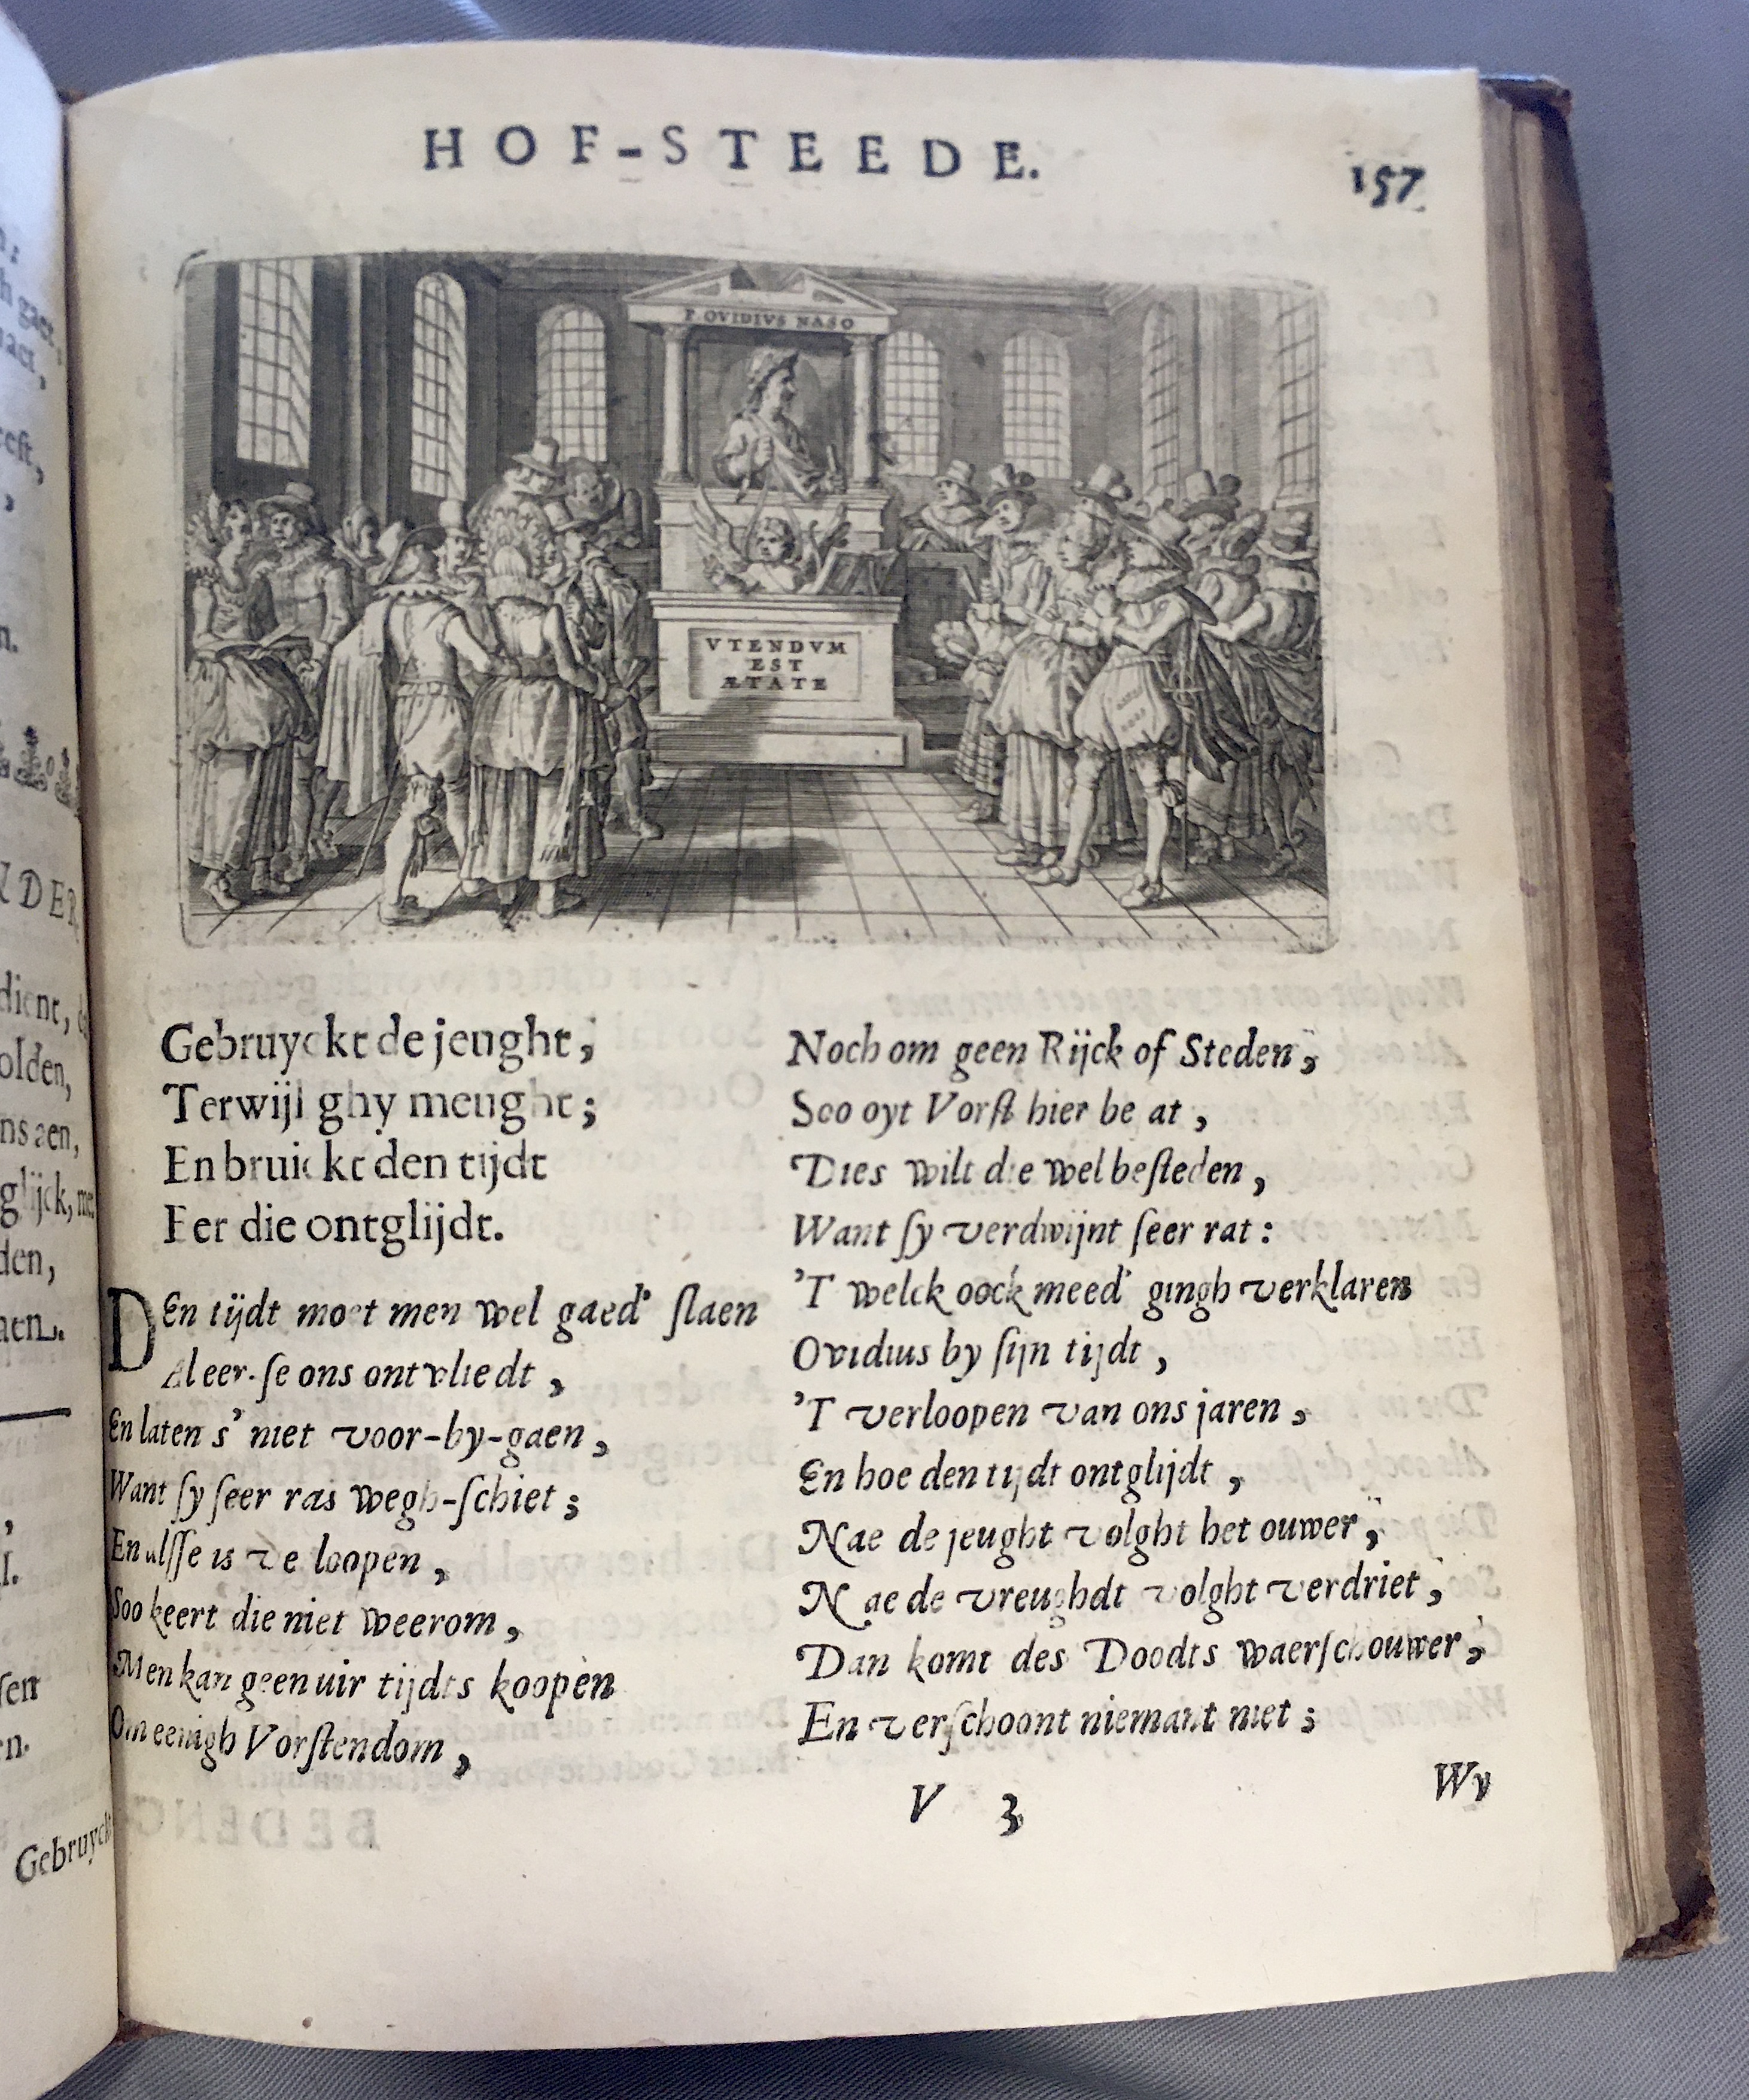 HOF-STEEDE.
157
P. OVIDIVS NASO
VTENDVM
EST
ÆTATE
Gebruyckt de jeught,
Terwijl ghy meught;
En bruickt den tijdt
Eer die ontglijdt.
DEn tijdt moet men wel gaed' ſlaen
Aleer-ſe ons ontvliedt,
En laten s' niet voor-by-gaen,
Want ſy ſeer ras wegh-ſchiet;
En alſſe is verloopen,
Soo keert die niet weerom,
Men kan geen uir tijdts koopen
Om eenigh Vorſtendom,
Noch om geen Rijck of Steden,
Soo oyt Vorſt hier beſat,
Dies wilt die wel beſteden,
Want ſy verdwijnt ſeer rat:
'T welck oock meed' gingh verklaren
Ovidius by ſijn tijdt,
'T verloopen van ons jaren,
En hoe den tijdt ontglijdt,
Nae de jeught volght het ouwer,
Nae de vreughdt volght verdriet,
Dan komt des Doodts waerſchouwer,
En verſchoont niemant niet;
V 3
Wy
Gebruyckt